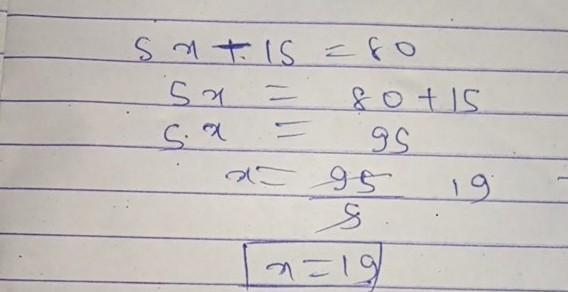 5x + 15 = 80
5x = 80 + 15
5x = 95
x = 95/5 19
x = 19